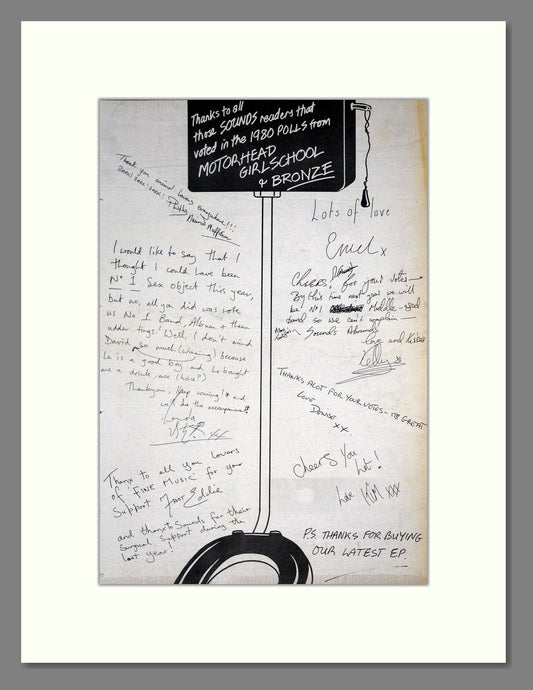 Thanks to all
those SOUNDS readers that
voted in the 1980 POLLS from
MOTORHEAD
GIRLSCHOOL
& BRONZE
Thank you animal lovers everywhere!!!
I would like to say that I
thought I could have been
No 1 Sex object this year,
but no, all you did was vote
us No 1 Band, Album & them
udder tings! Well, I don't mind
David so much (winning) because
he is a good boy and he bought
me a drink once
Thankyou, keep coming! and
we'll do the
xx
Thanx to all you Lovers
of "FINE MUSIC" for your
Support Eddie
and thanx to Sounds for their
Support during the
last year!
Lots of love
x
Cheers, for your votes
By this time next year we will
be No1 Middle-aged
band so we can't complain
Sounds
love and kisses
Kelly x
THANKS ALOT FOR YOUR VOTES
LOVE
Denise
xx.
Cheers You
Lot!
Love Kim xxx
P.S. THANKS FOR BUYING
OUR LATEST EP.